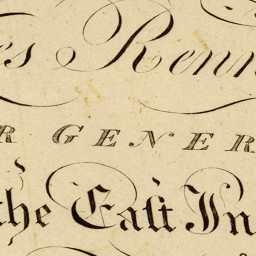 es Renn
R GENER
the Eaſt In